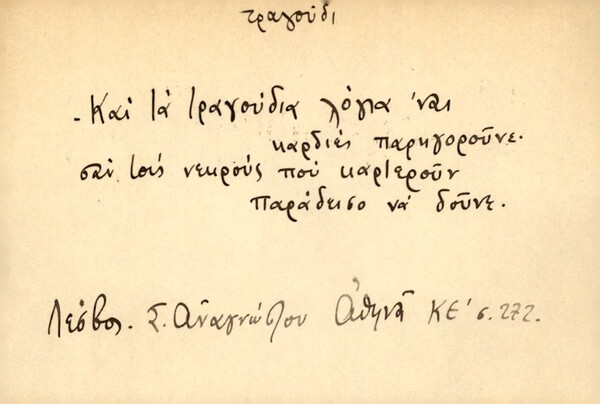 τραγούδι
- Καὶ τὰ τραγούδια λόγια 'ναι
καρδιὲς παρηγοροῦνε.
σὰν τοὺς νεκροὺς ποὺ καρτεροῦν
Παράδεισο νὰ δοῦνε.
Λέσβος. Σ. Ἀναγνώστου Ἀθηνᾶ ΚΕ' σ. 272.